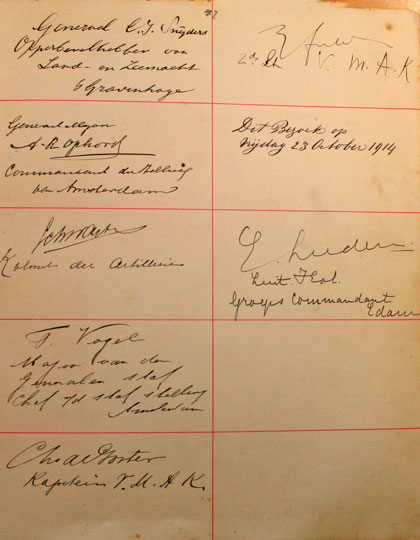 Generaal C.J. Snijders
Opperbevelhebber van
Land- en Zeemacht
s Gravenhage
2de Lt V. M. A. K
Generaal Majoor
A. R. Ophorst
Commandant der Stelling
van Amsterdam
Dit Bezoek op
Vrijdag 23 October 1914
Kolonel der Artillerie
E. Luden
Luit Kol.
Groeps Commandant
Edam
T. Vogel
Majoor van den
Generalen staf
Chef v/d staf stelling
Amsterdam
Kapitein V. M. A. K.